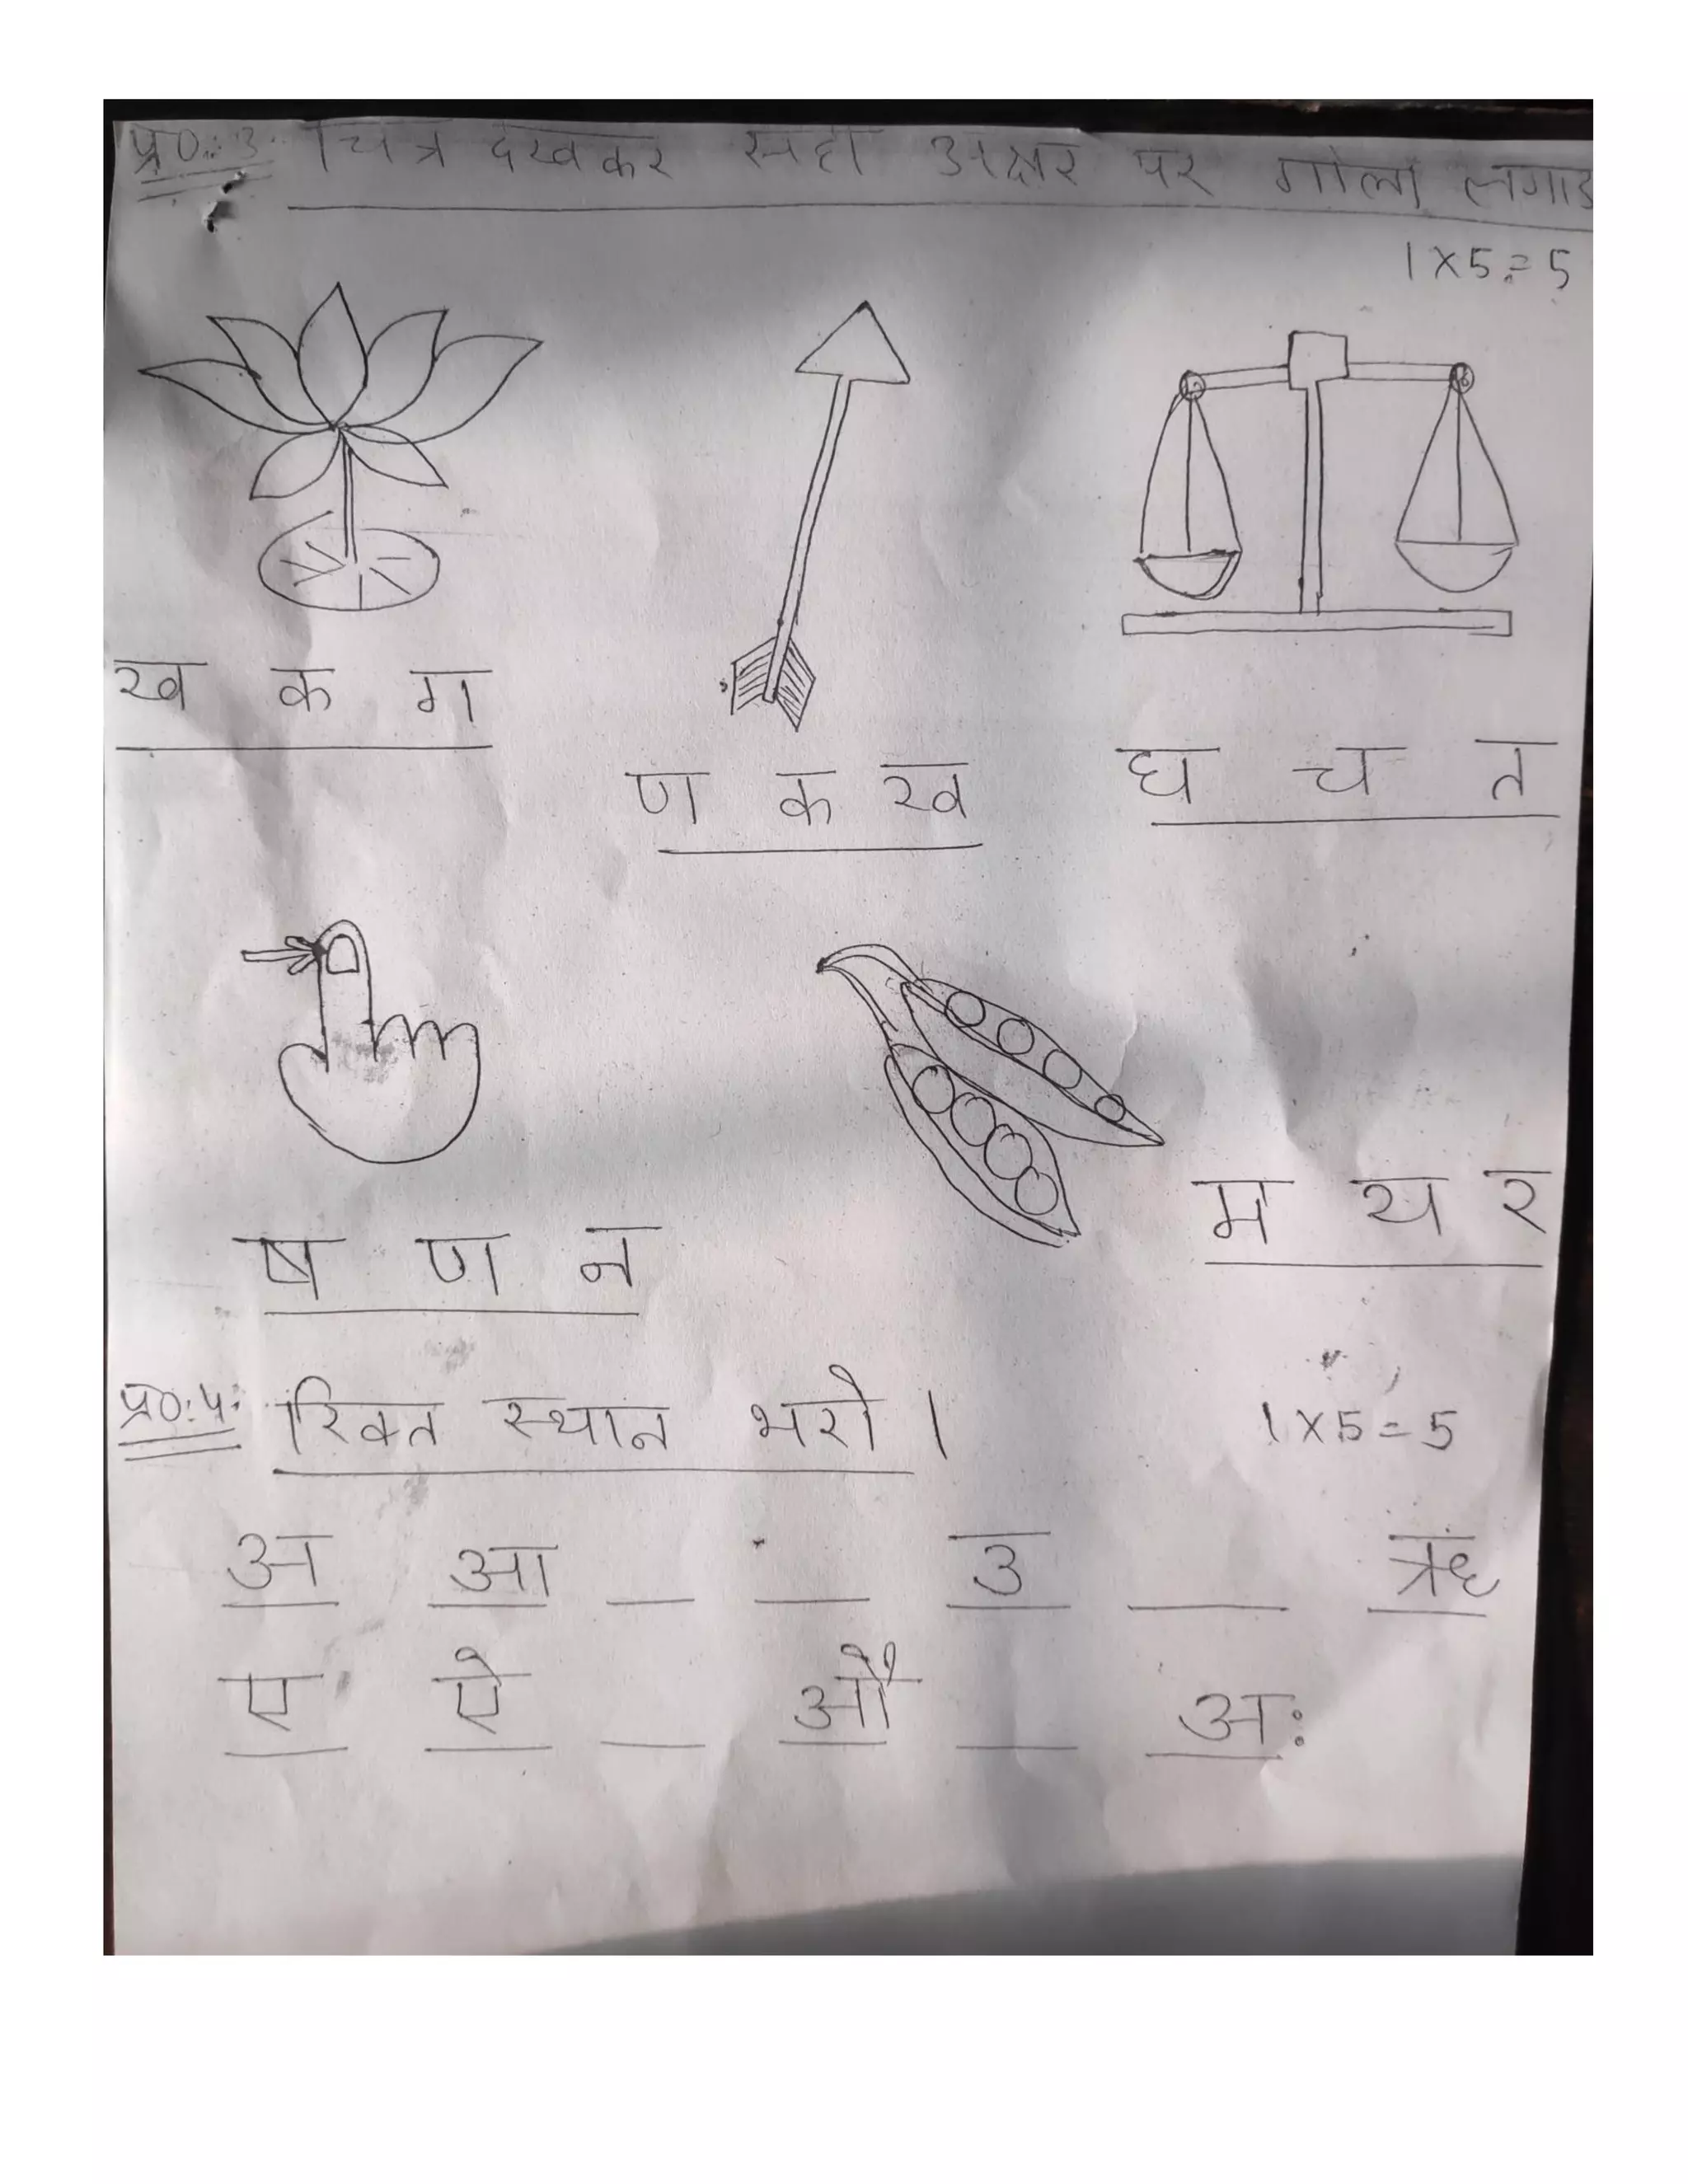 प्र०:3. चित्र देखकर सही अक्षर पर गोला
1×5=5
ख क ग
ण क ख
घ च त
ष ण न
म य र
प्र०:4: रिक्त स्थान भरो । 1×5=5
अ आ _ _ उ _ ऋ
ए ऐ _ औ _ अः